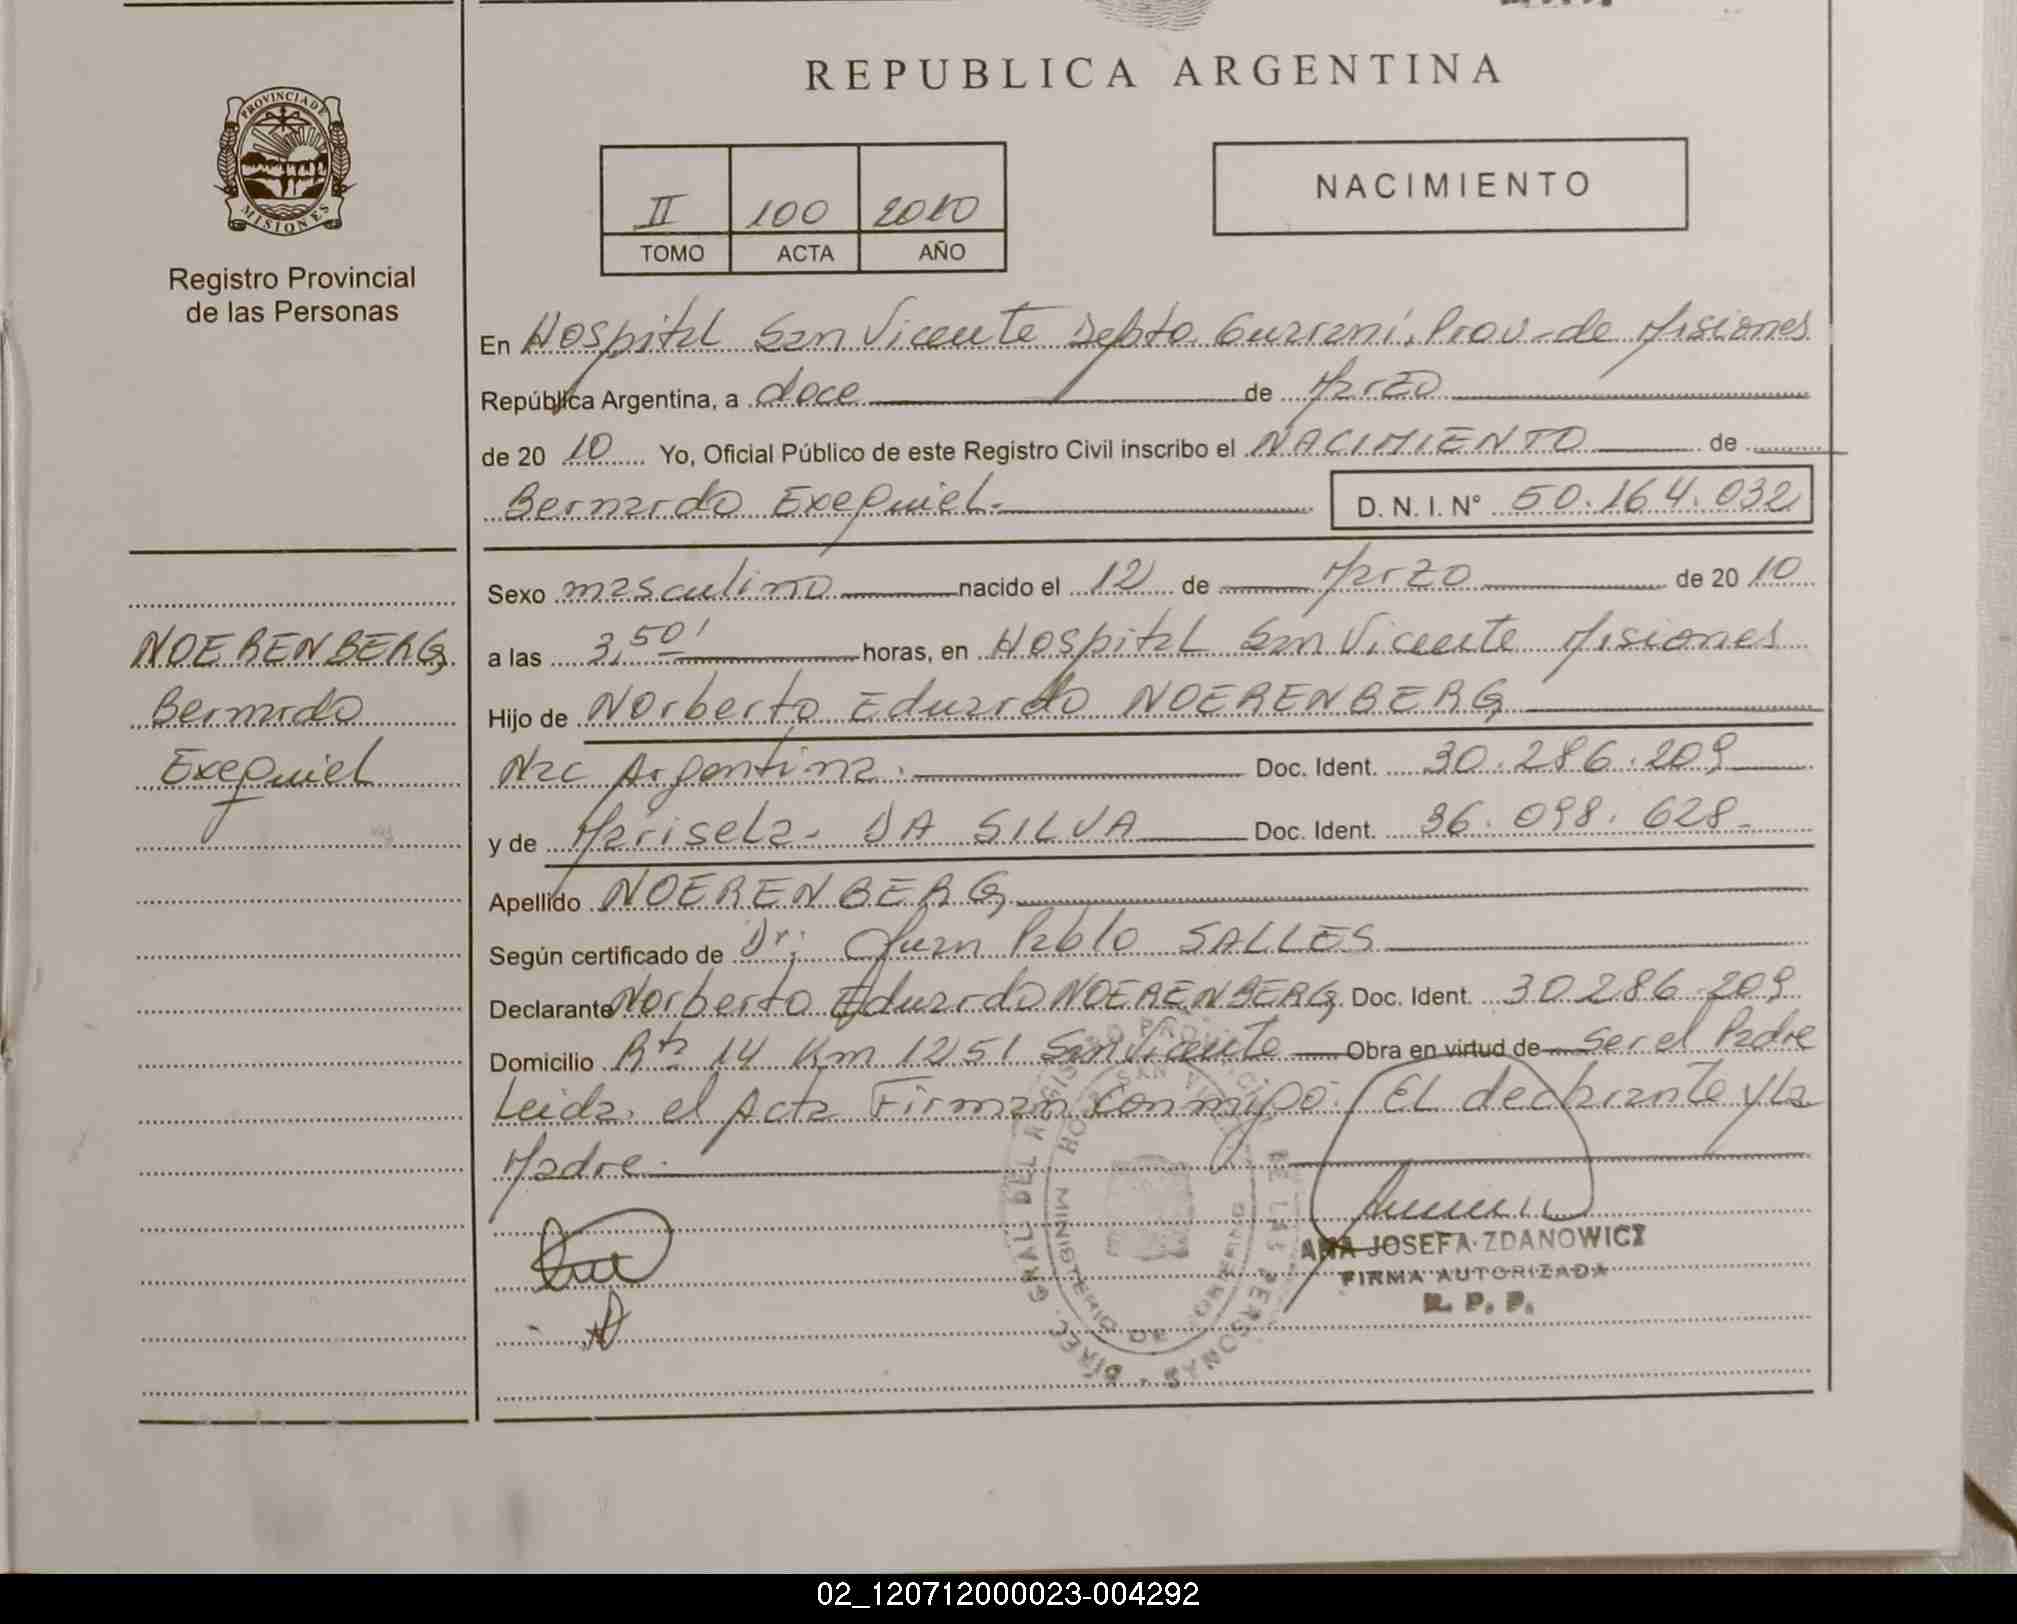 REPUBLICA ARGENTINA
PROVINCIA DE
MISIONES
Registro Provincial
de las Personas
II 100 2010
TOMO ACTA AÑO
NACIMIENTO
En Hospital San Vicente Depto. Guarani, Prov-de Misiones
República Argentina, a doce de Marzo
de 20 10 Yo, Oficial Público de este Registro Civil inscribo el NACIMIENTO de
Bernardo Exequiel.- D. N. I. N° 50.164.032
Sexo masculino nacido el 12 de Marzo de 20 10
a las 3,50' horas, en Hospital San Vicente Misiones
Hijo de Norberto Eduardo NOERENBERG
Nac Argentina. Doc. Ident. 30.286.209
y de Marisela - DA SILVA Doc. Ident. 36.098.628-
Apellido NOERENBERG
Según certificado de Dr; Juan Pablo SALLES
Declarante Norberto Eduardo NOERENBERG Doc. Ident. 30286.209
Domicilio Rta 14 Km 1251 San Vicente Obra en virtud de ser el Padre
Leida el Acta Firman conmigo. El declarante y la
Madre.
NOERENBERG
Bernardo
Exequiel
ANA JOSEFA ZDANOWICZ
FIRMA AUTORIZADA
R. P. P.
02_120712000023-004292